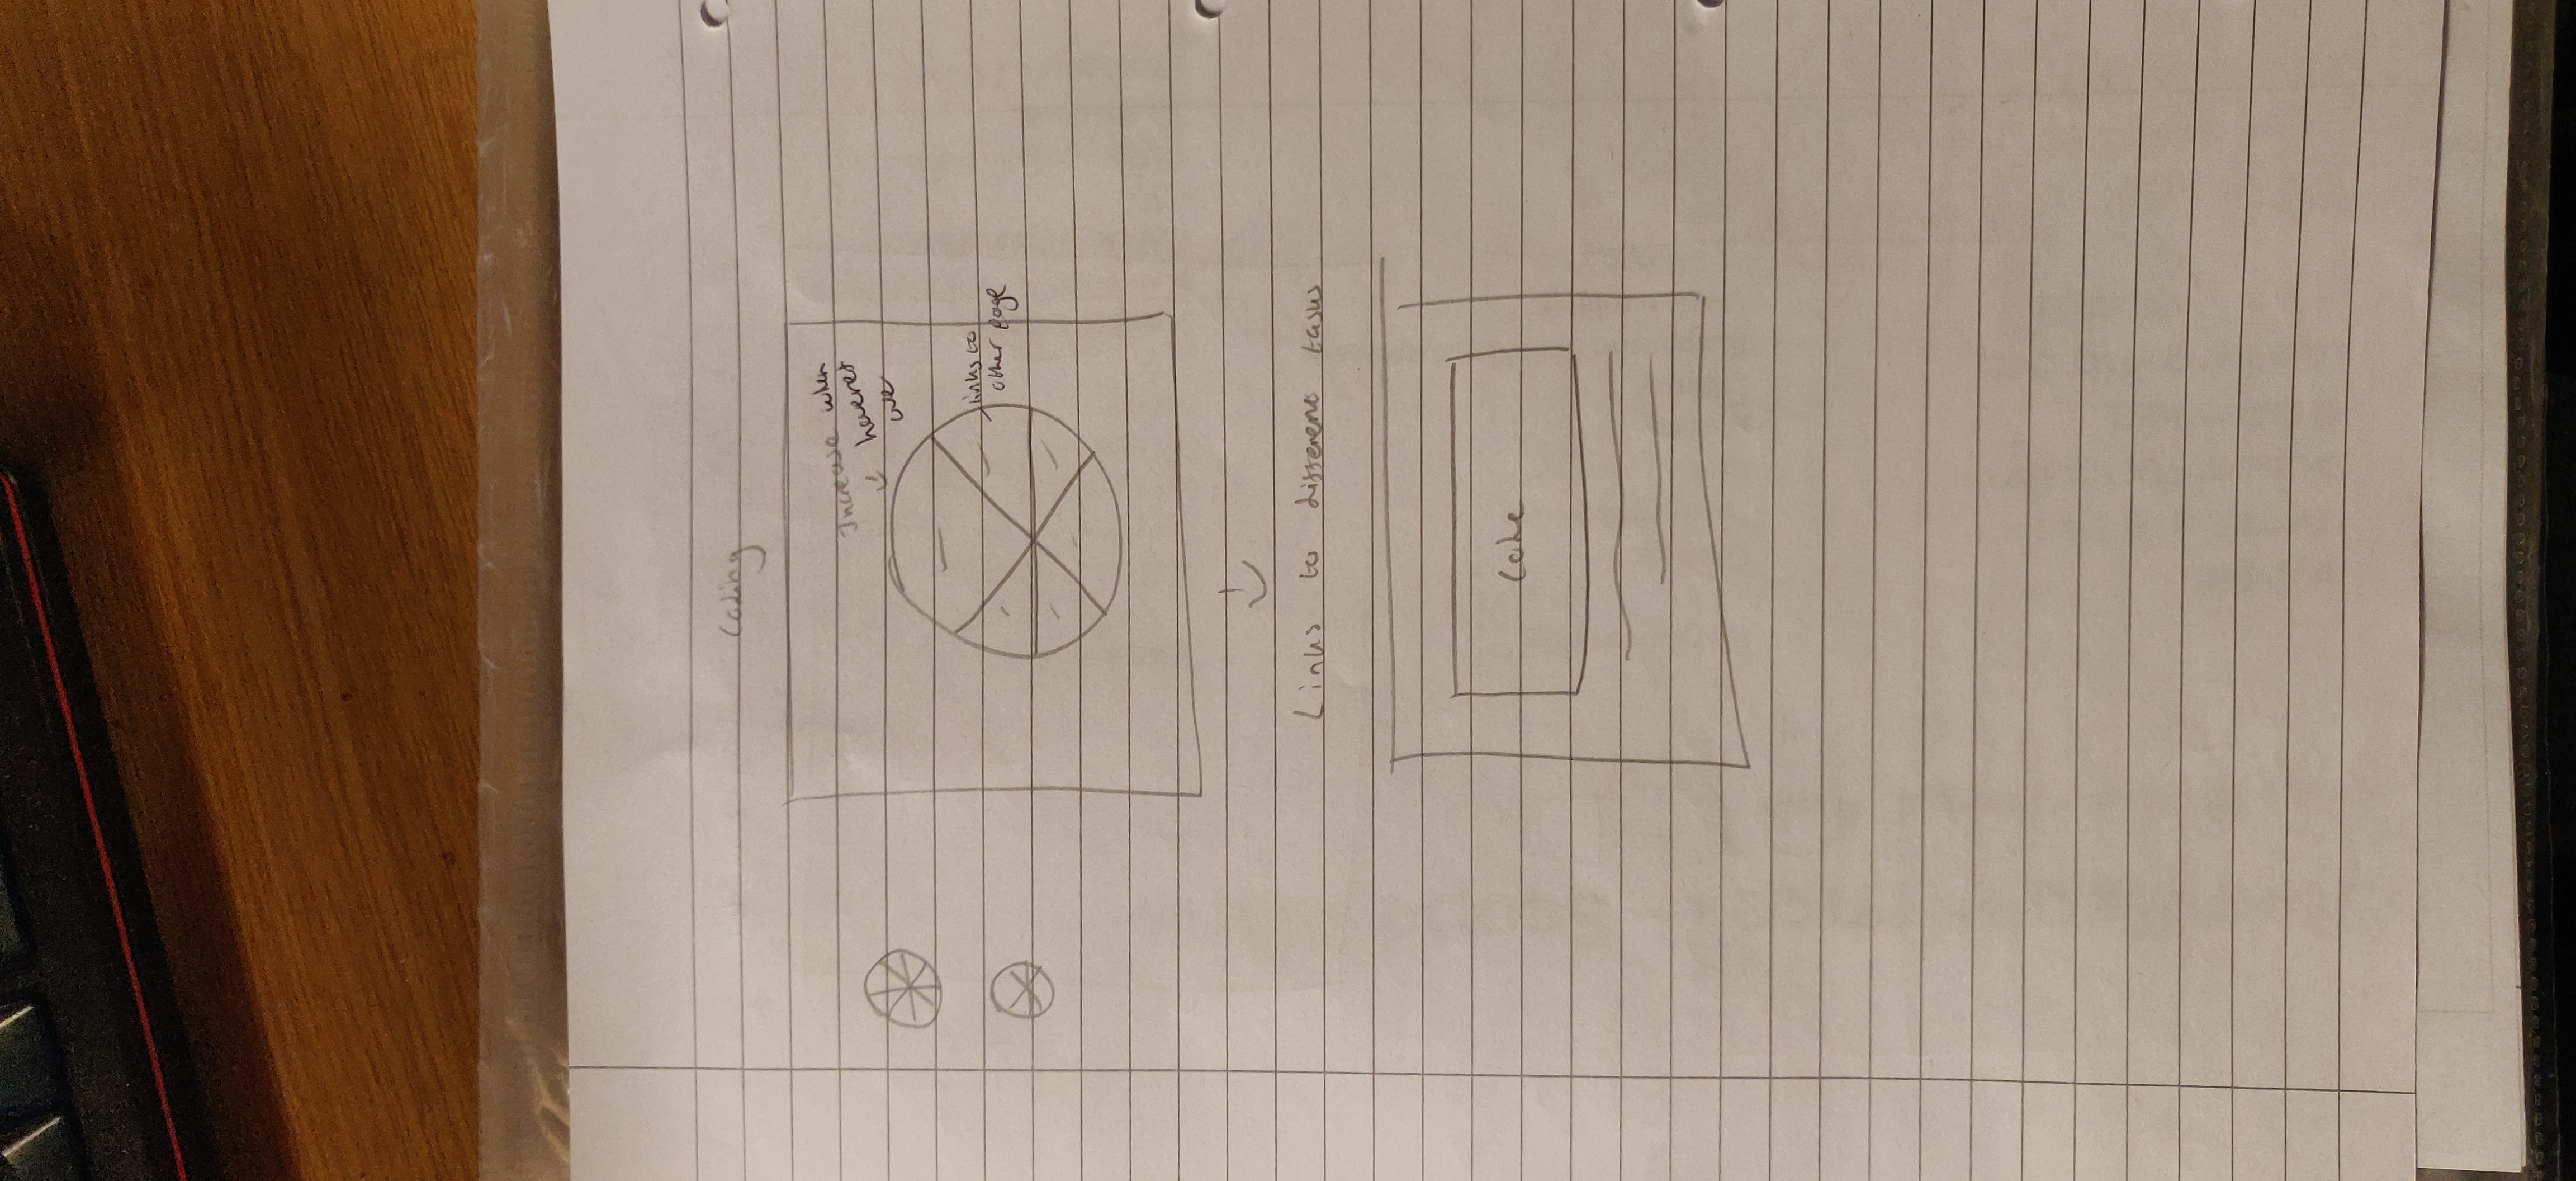 Coding
Increase when
hovered
over
links to
other page
Links to different tasks
Code